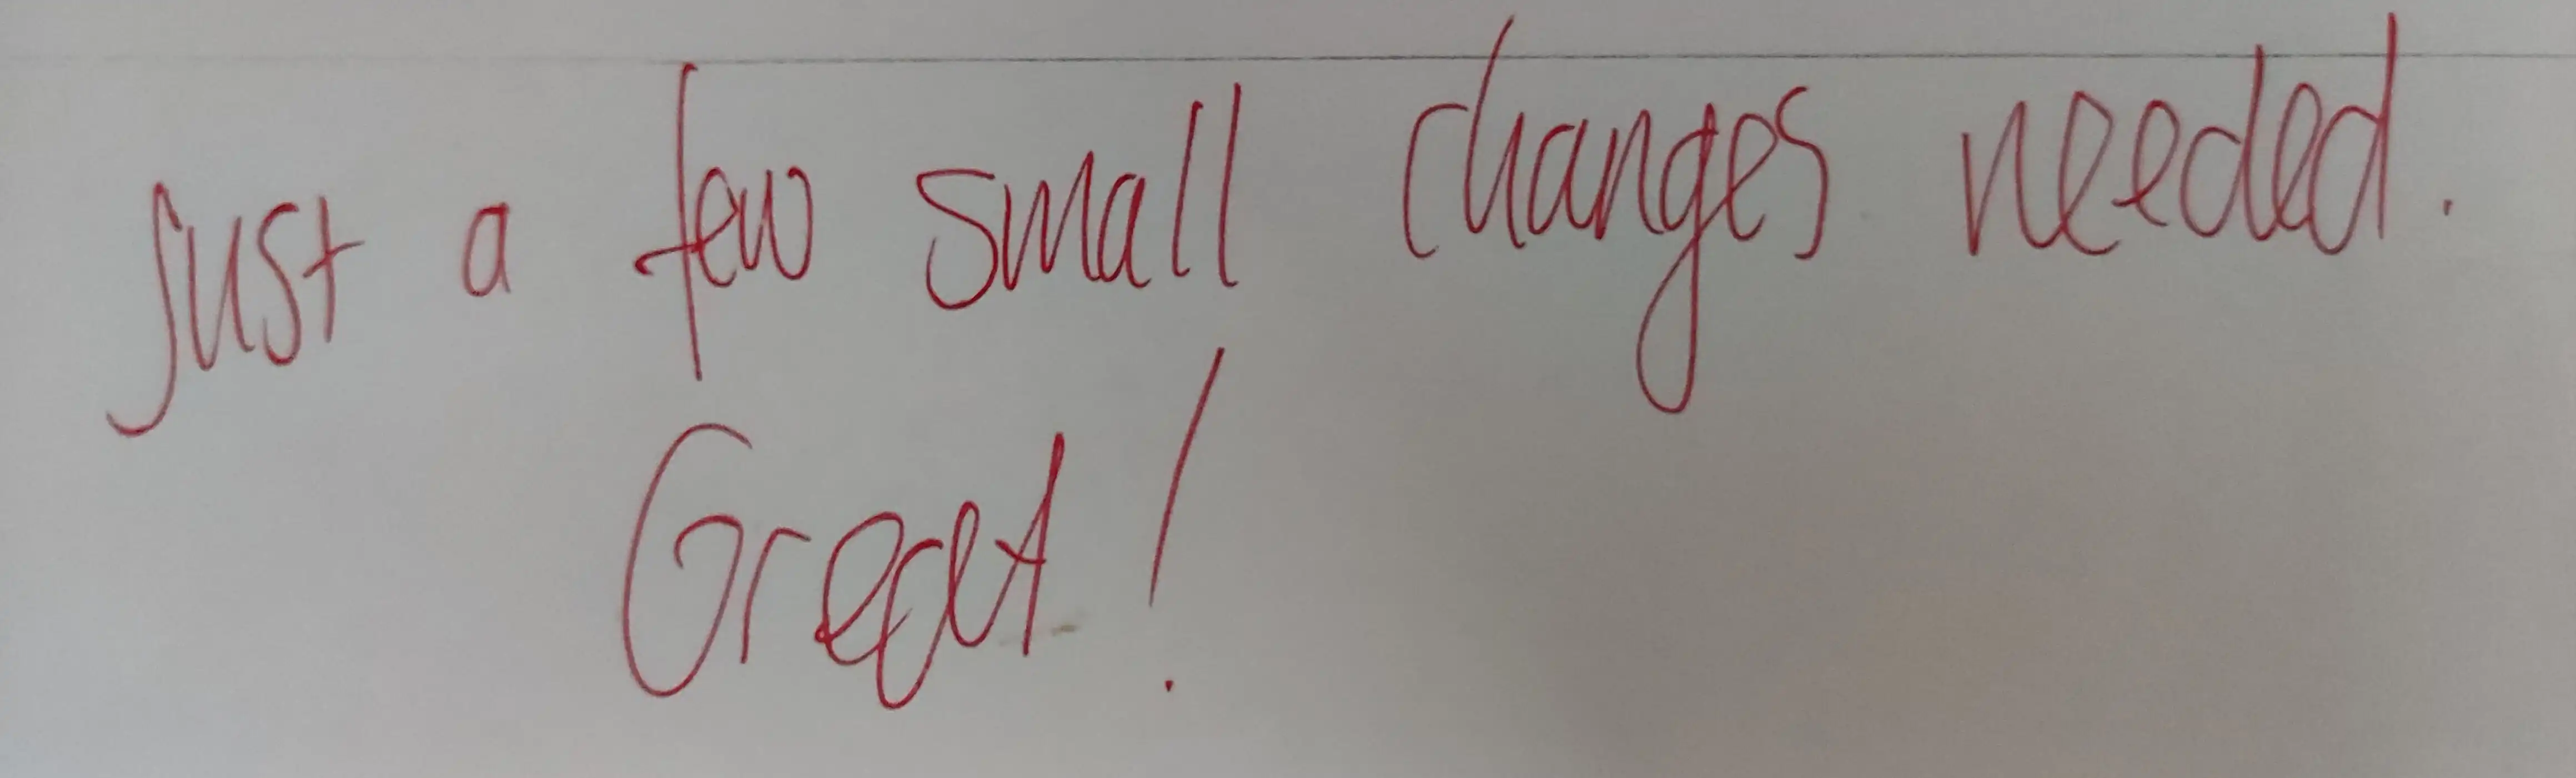 just a few small changes needed.
Great!